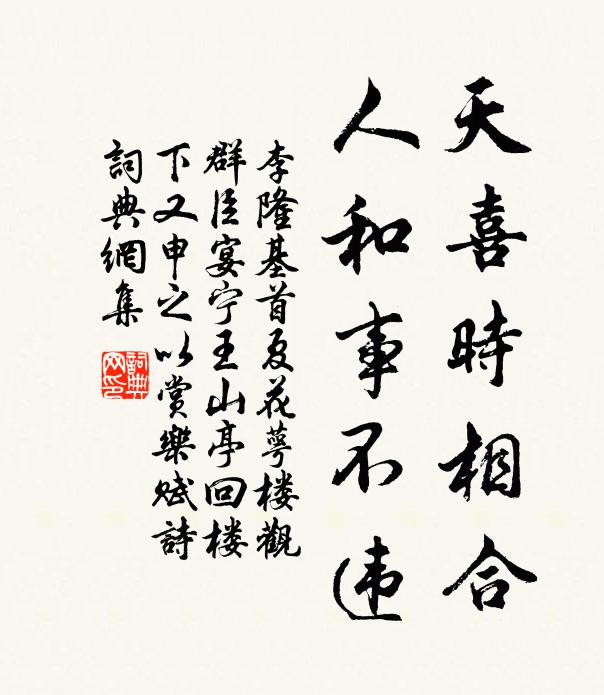 天喜時相合
人和事不违
李隆基首夏花萼楼觀
群臣宴宁王山亭回楼
下又申之以赏樂赋詩
詞典網集
詞典
网印